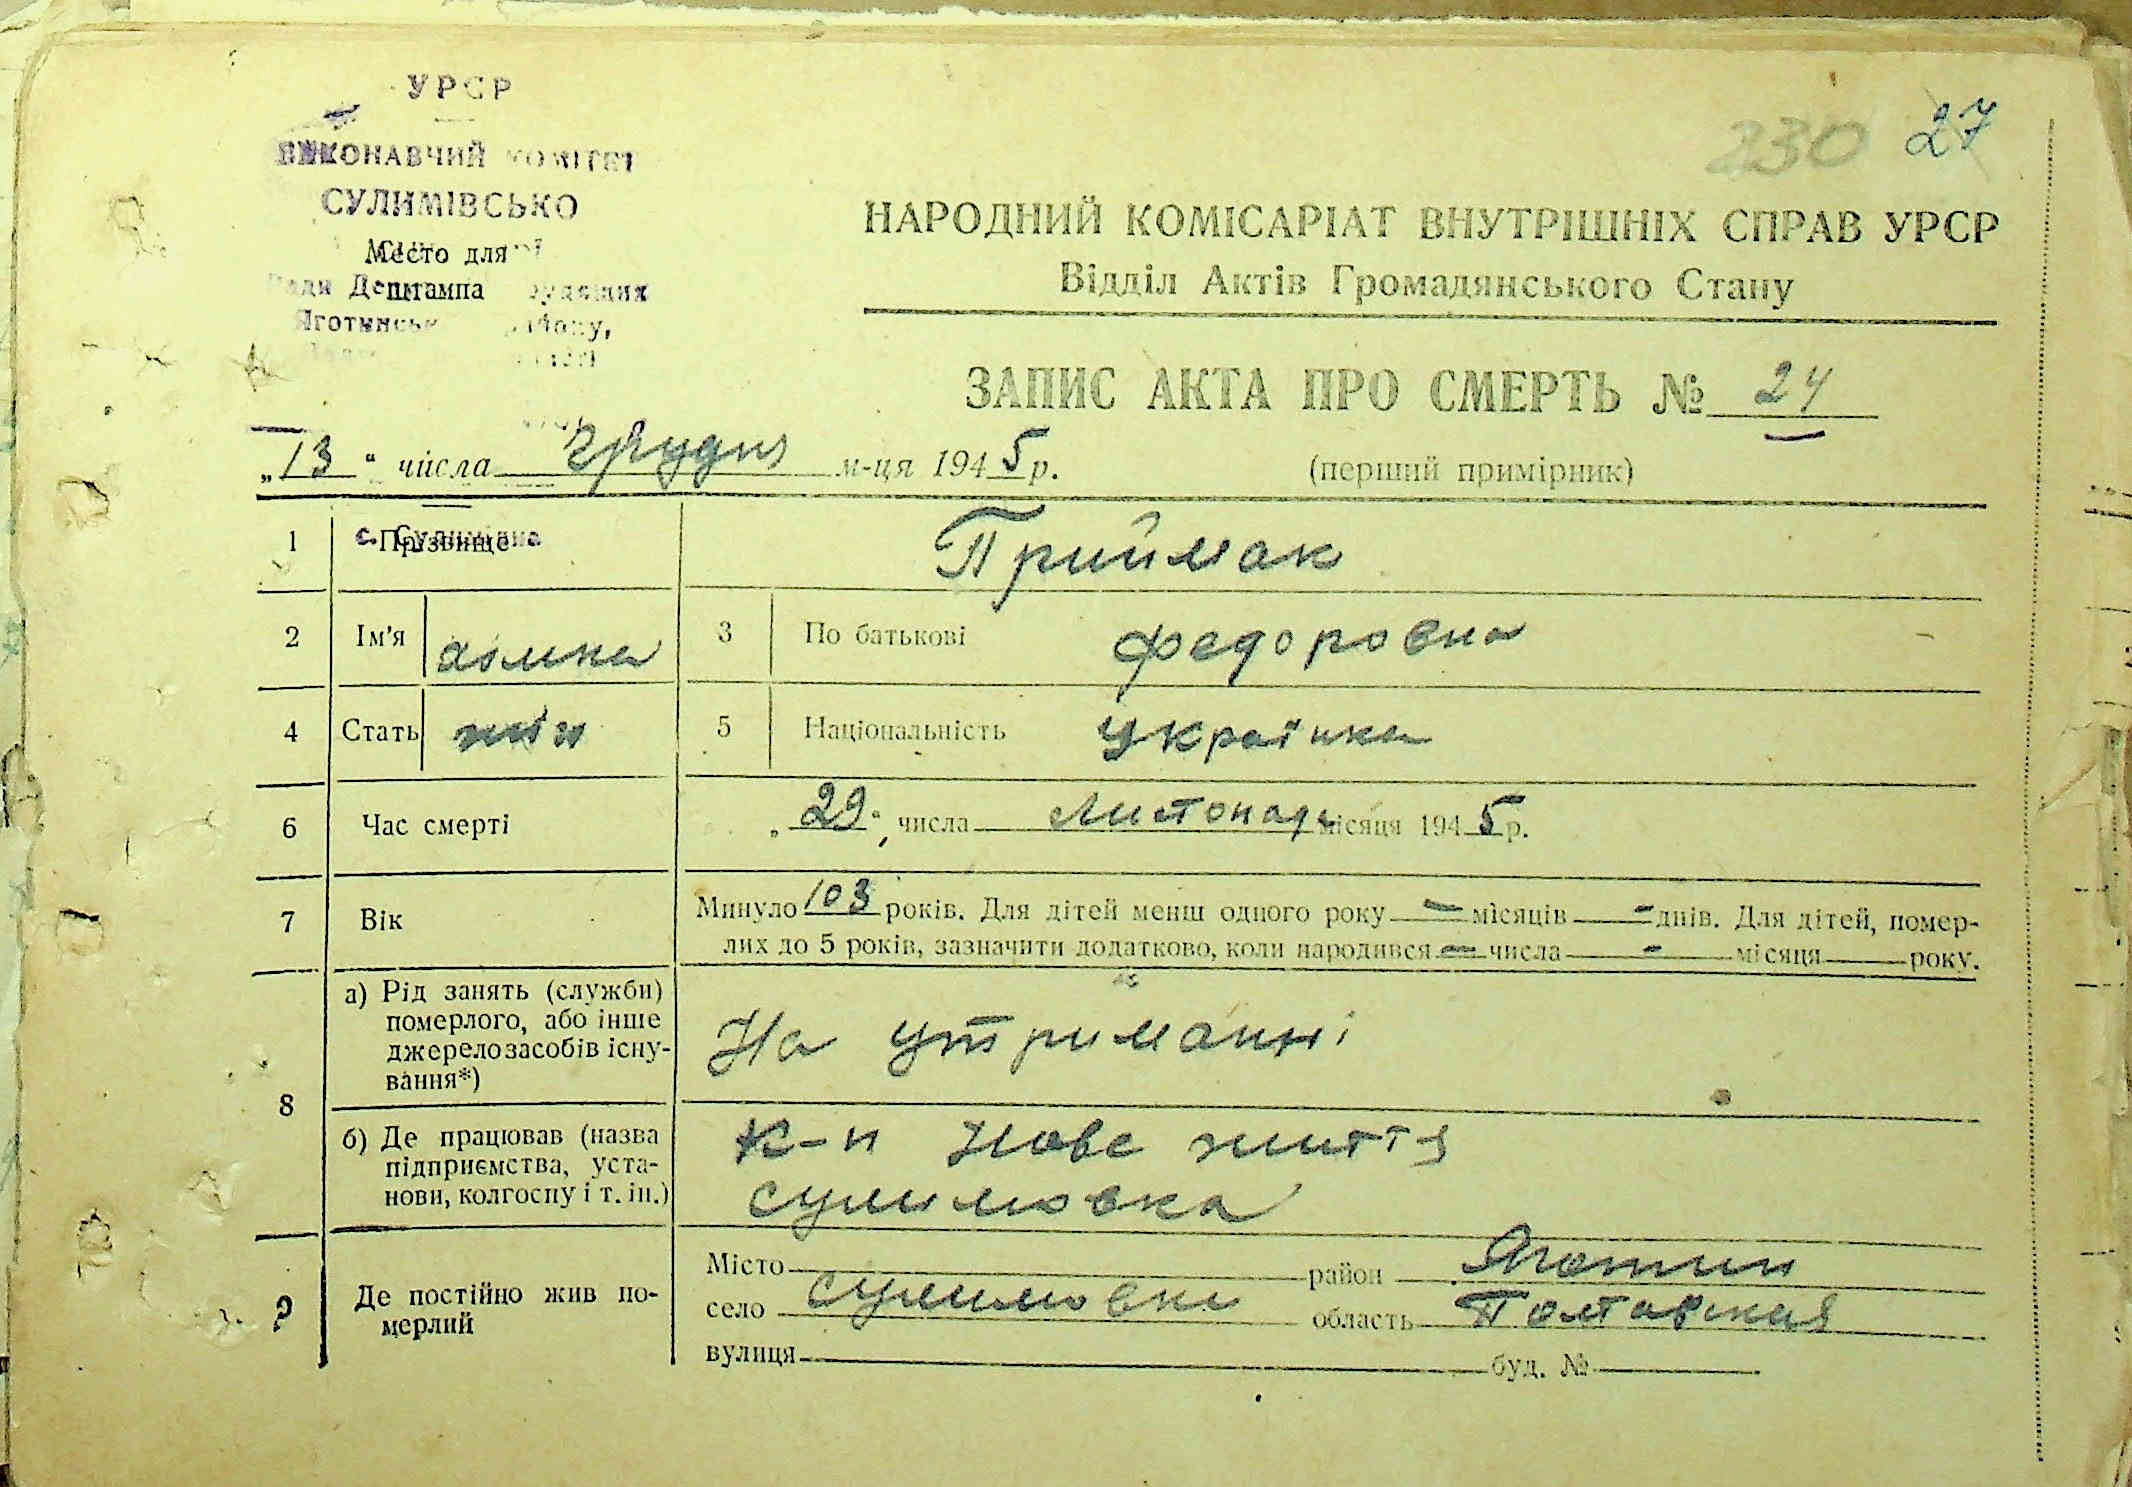 УРСР
ВИКОНАВЧИЙ КОМІТЕТ
СУЛИМІВСЬКО
Место для
штампа
230 27
НАРОДНИЙ КОМІСАРІАТ ВНУТРІШНІХ СПРАВ УРСР
Відділ Актів Громадянського Стану
ЗАПИС АКТА ПРО СМЕРТЬ № 24
„13“ числа грудня м-ця 1945 р.
(перший примірник)
1 Прізвище Приймак
2 Ім'я 3 По батькові Федоровна
4 Стать жін 5 Національність Українка
6 Час смерті „29“ числа Листопада місяця 1945 р.
7 Вік Минуло 103 років. Для дітей менш одного року — місяців — днів. Для дітей, помер-
лих до 5 років, зазначити додатково, коли народився — числа — місяця року.
8 а) Рід занять (служби)
померлого, або інше
джерело засобів існу-
вання*)
На утриманні
б) Де працював (назва
підприємства, уста-
нови, колгоспу і т. ін.)
К-п Нове життя
Сулимовка
9 Де постійно жив по-
мерлий
Місто район Яготин
село Сулимовка область Полтавская
вулиця буд. №